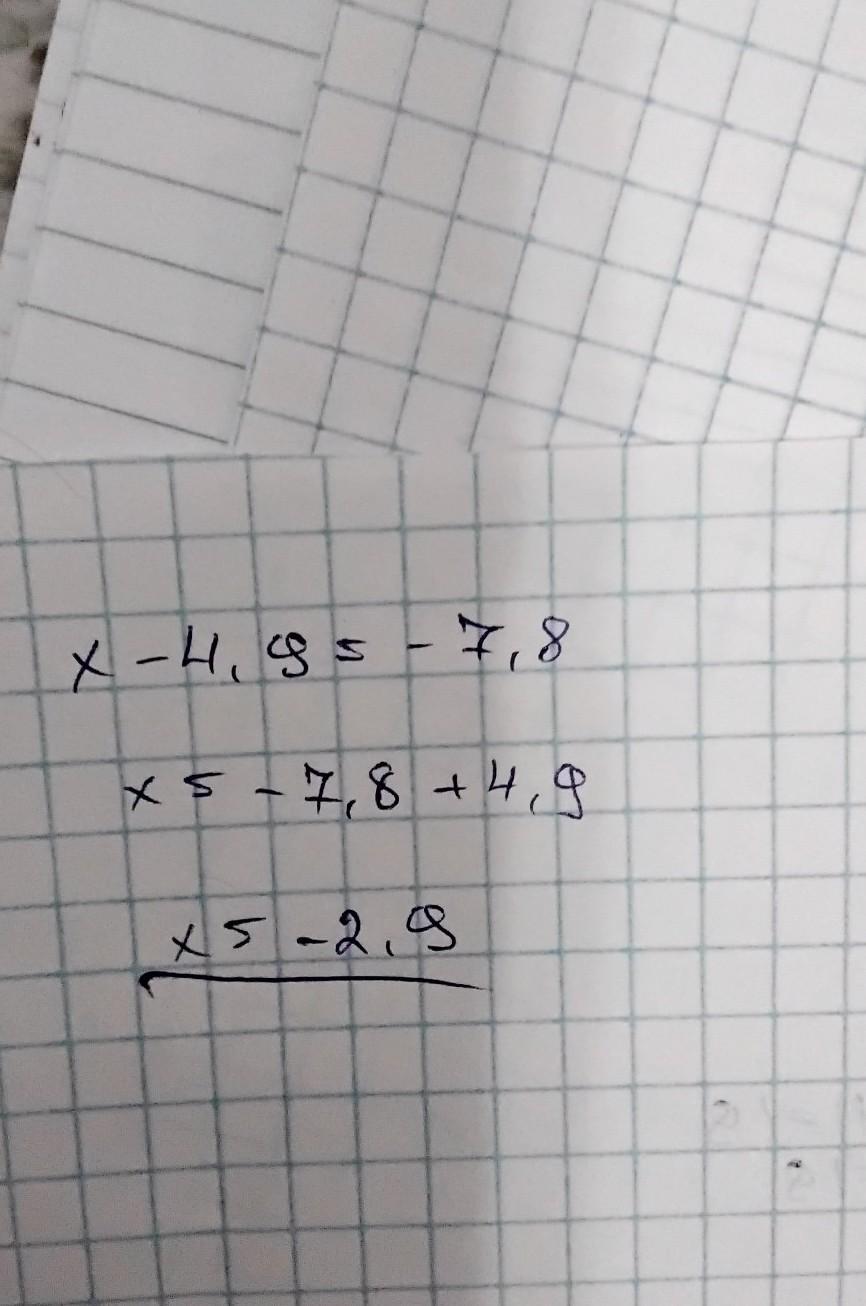 x - 4,9 = - 7,8
x = - 7,8 + 4,9
x = - 2,9